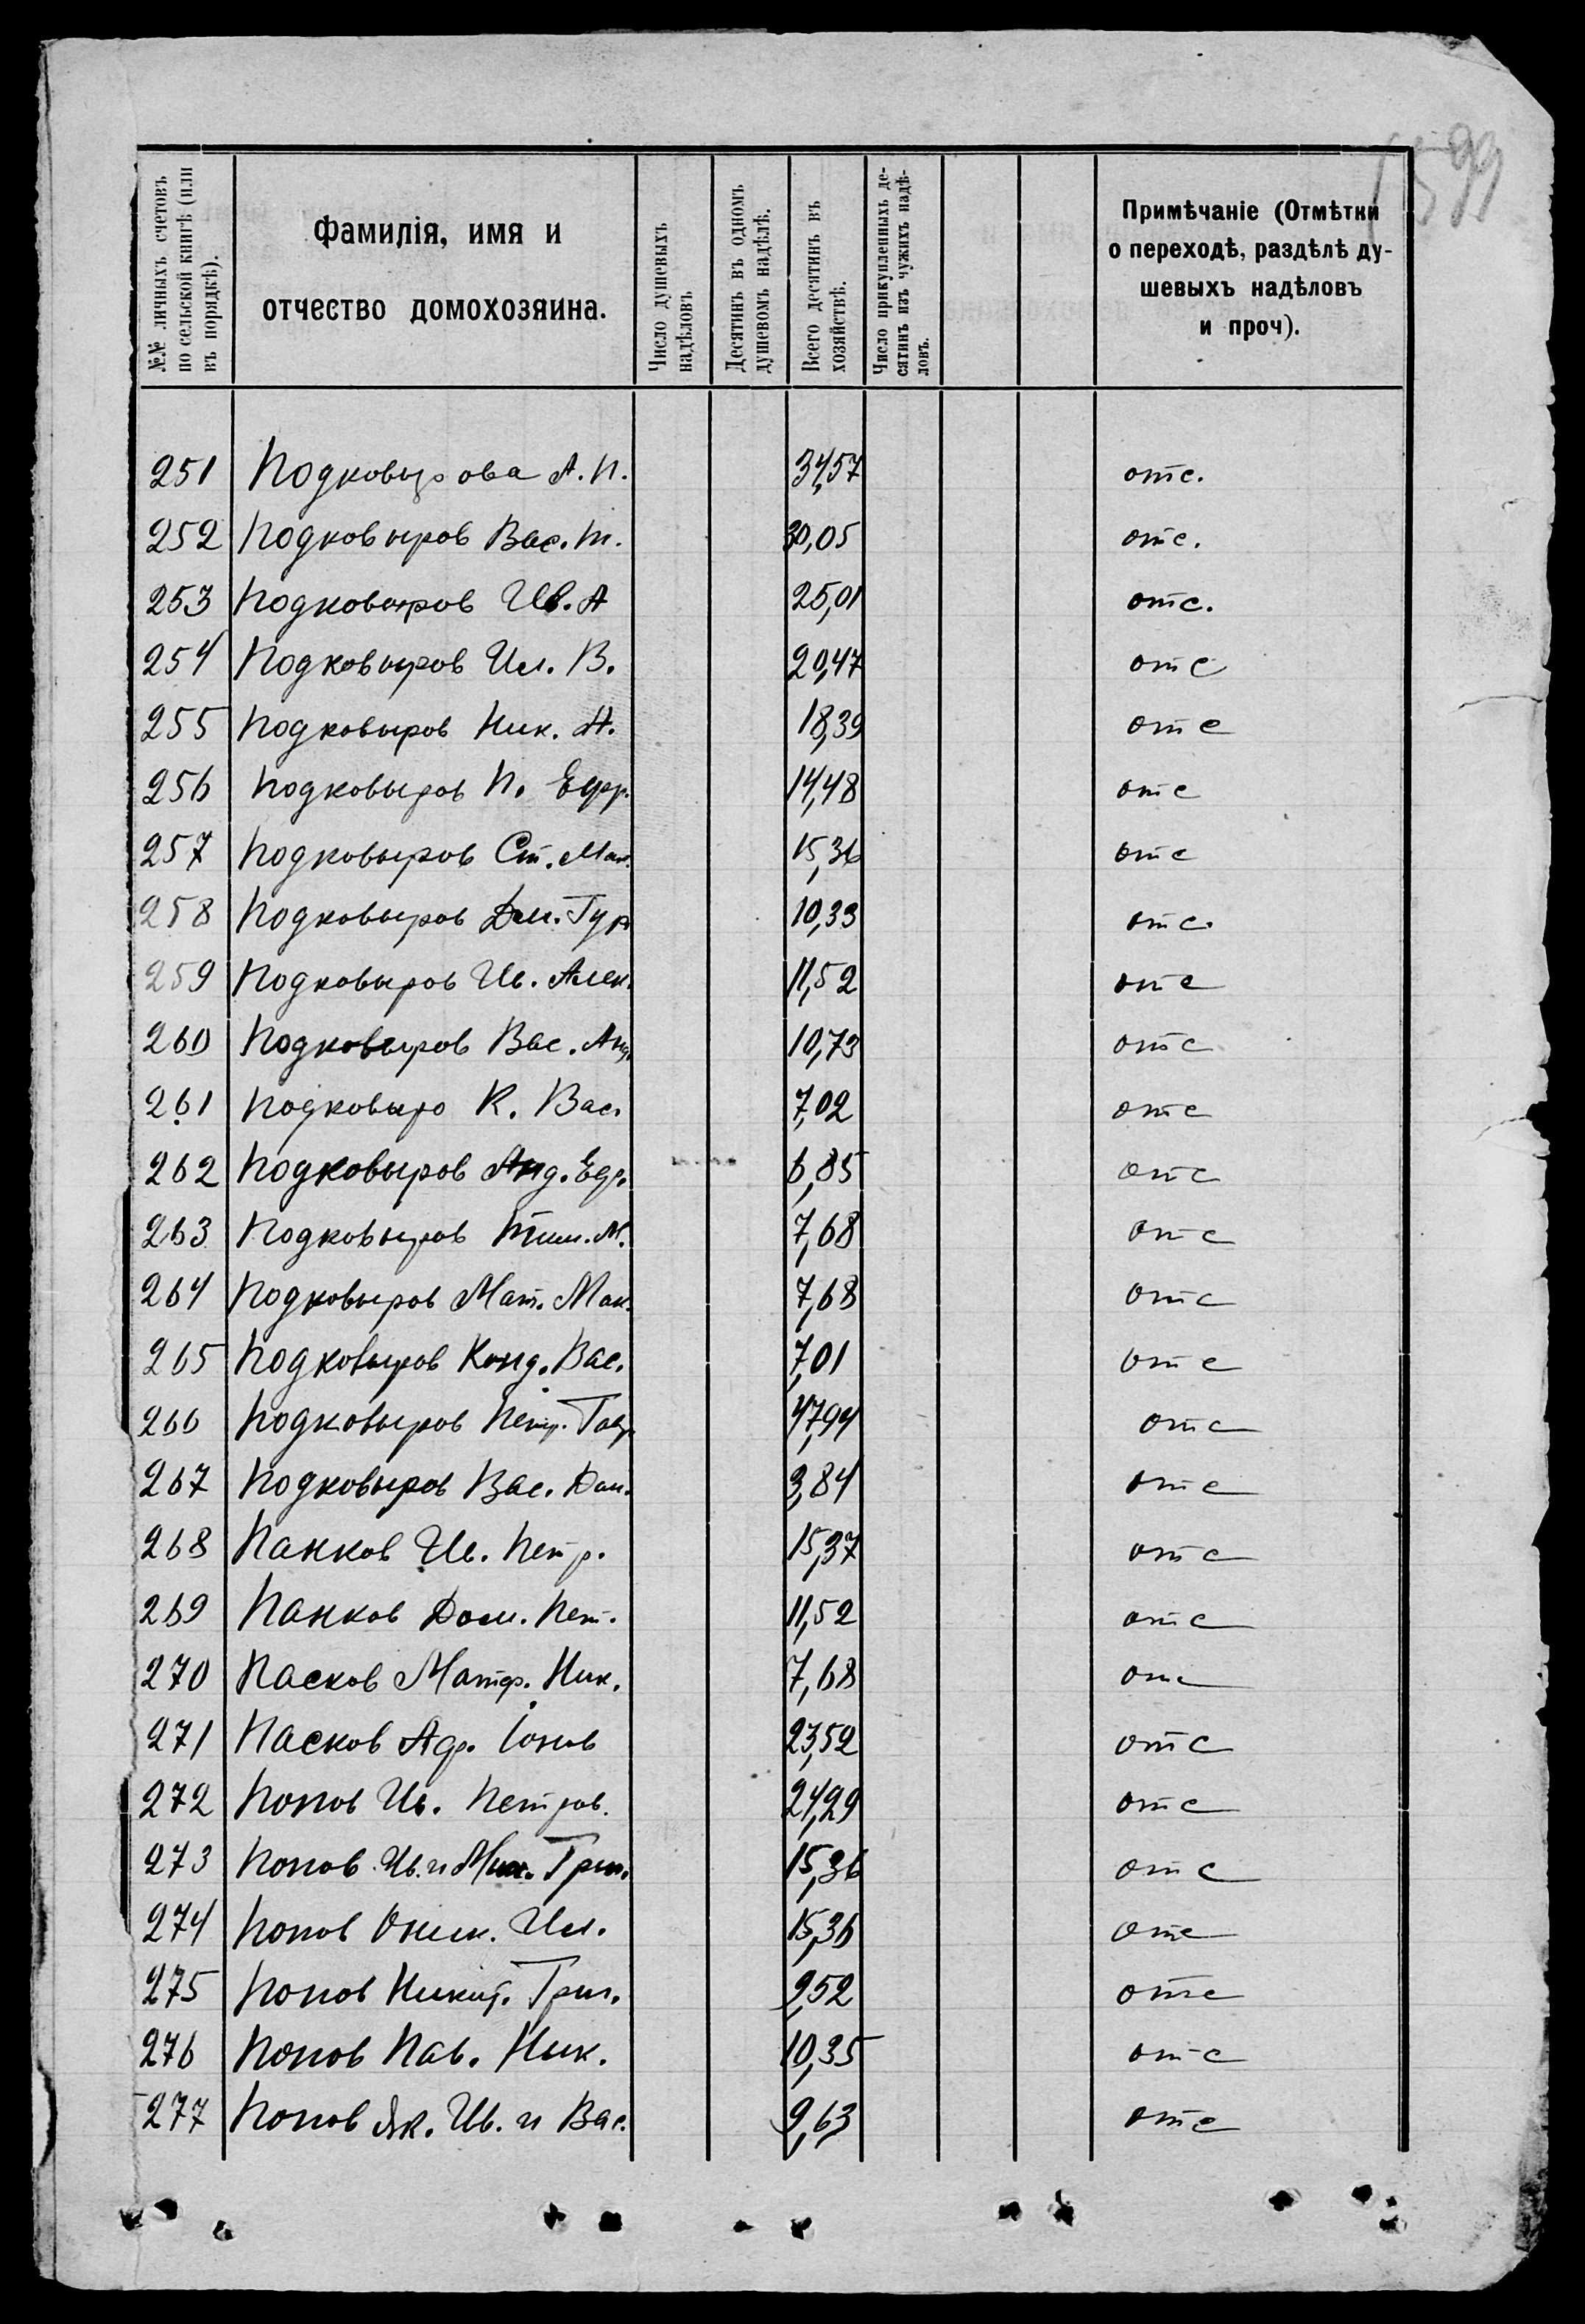 99
№№ личныхъ счетовъ по сельской книгѣ (или въ порядкѣ).
Фамилія, имя и отчество домохозяина.
Число душевыхъ надѣловъ
Десятинъ въ одномъ душевомъ надѣлѣ.
Всего десятинъ въ хозяйствѣ.
Число прикупленныхъ десятинъ изъ чужихъ надѣловъ.
Примѣчаніе (Отмѣтки о переходѣ, раздѣлѣ душевыхъ надѣловъ и проч).
251 Подковырова А. П. 34,57 отс.
252 Подковыров Вас. Т. 30,05 отс.
253 Подковыров Ив. А 25,01 отс.
254 Подковыров Ил. В. 20,47 отс
255 Подковыров Ник. А. 18,39 отс
256 Подковыров П. Ефр. 14,48 отс
257 Подковыров Ст. Мак. 15,36 отс
258 Подковыров Дм. Гур 10,33 отс.
259 Подковыров Ив. Алек. 11,52 отс
260 Подковыров Вас. Анд. 10,73 отс
261 Подковыро К. Вас. 7,02 отс
262 Подковыров Анд. Ефр. 6,85 отс
263 Подковыров Тим. М. 7,68 отс
264 Подковыров Мат. Мак. 7,68 отс
265 Подковыров Конд. Вас. 7,01 отс
266 Подковыров Петр. Гавр. 47,94 отс
267 Подковыров Вас. Дан. 3,84 отс
268 Панков Ив. Петр. 15,37 отс
269 Панков Дом. Пет. 11,52 отс
270 Пасков Матф. Ник. 7,68 отс
271 Пасков Афр. Іонов 23,52 отс
272 Попов Ив. Петров. 24,29 отс
273 Попов Ив. и Мих. Григ. 15,36 отс
274 Попов Оним. Ил. 15,36 отс
275 Попов Никит. Григ. 9,52 отс
276 Попов Пав. Ник. 10,35 отс
277 Попов Як. Ив. и Вас. 9,63 отс